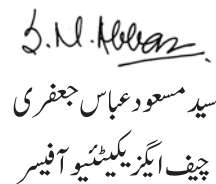 S. M. Abbas
سید مسعود عباس جعفری
چیف ایگزیکیٹیو آفیسر